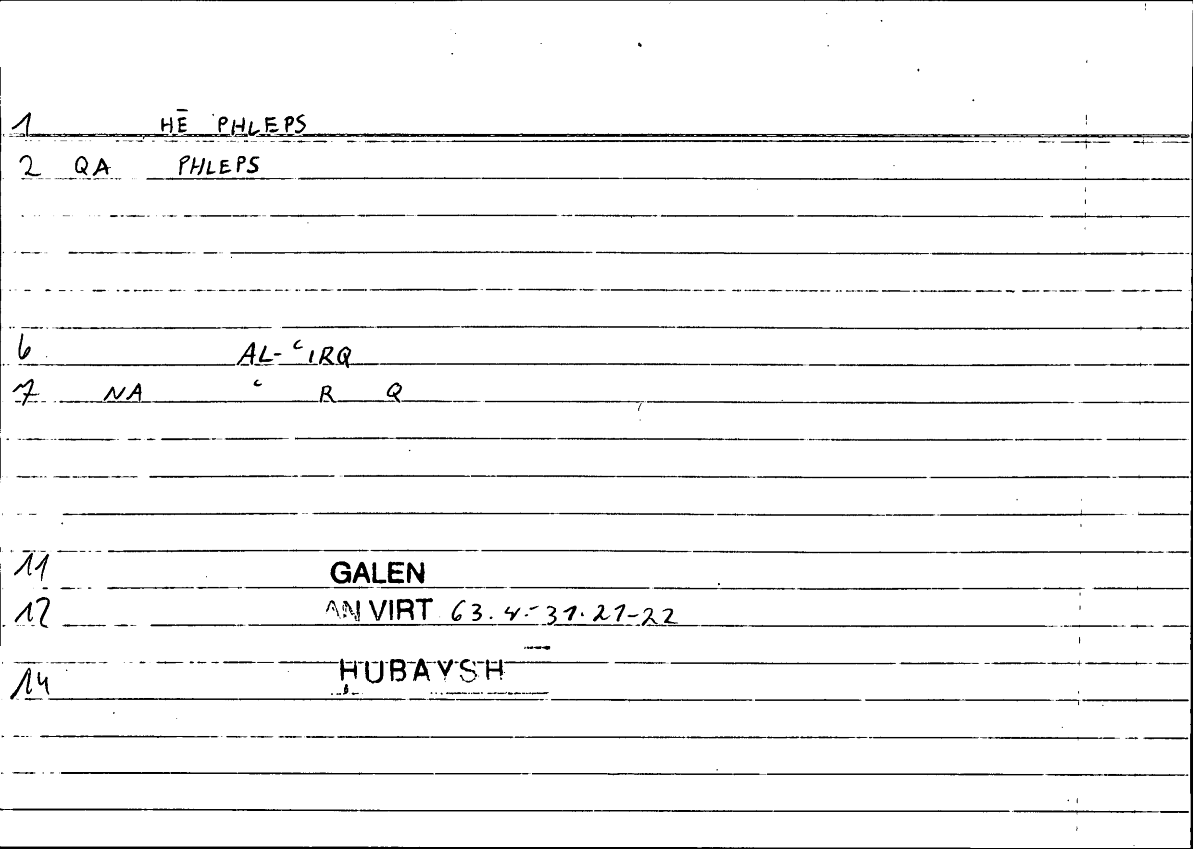 1 HĒ PHLEPS
2 QA PHLEPS
6 AL-ʿIRQ
7 NA ʿ R Q
11 GALEN
12 AN VIRT 63.4-31.21-22
14 ḤUBAYSH